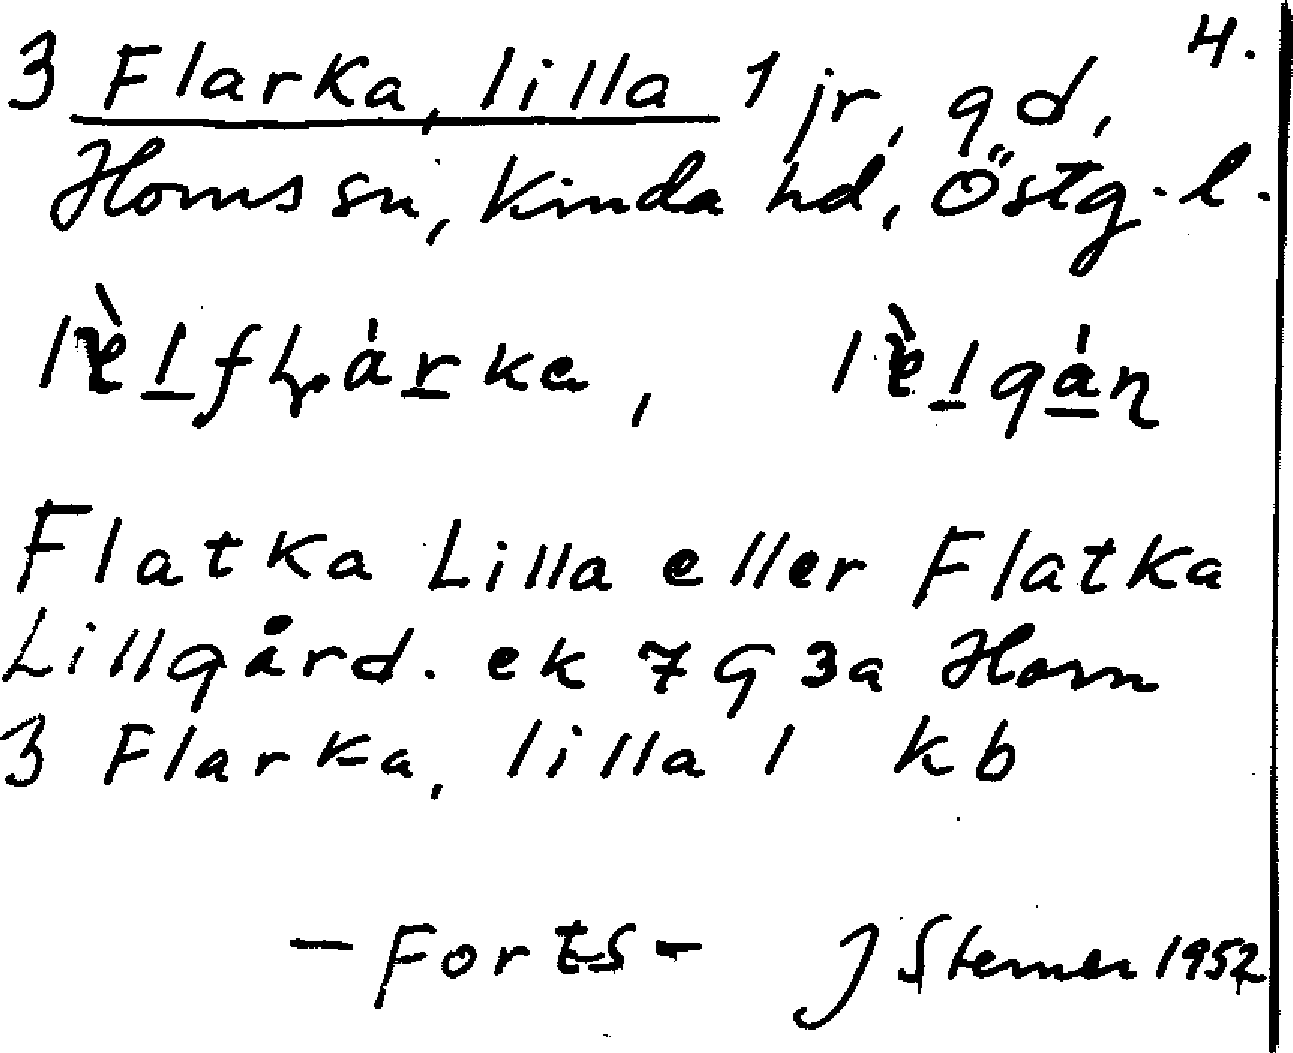 4.
3 Flarka, lilla 1 jr, gd,
Horns sn, Kinda hd, Östg. l.
Flatka Lilla eller Flatka
Lillgård. ek 7 G 3a Horn
3 Flarka, lilla 1 kb
- Forts - J Sterner 1952